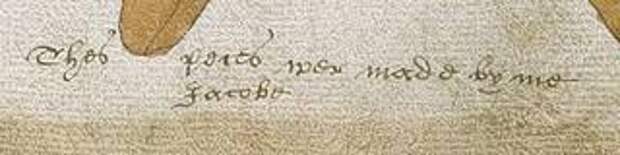 Thes peces wer made by me
Jacobe